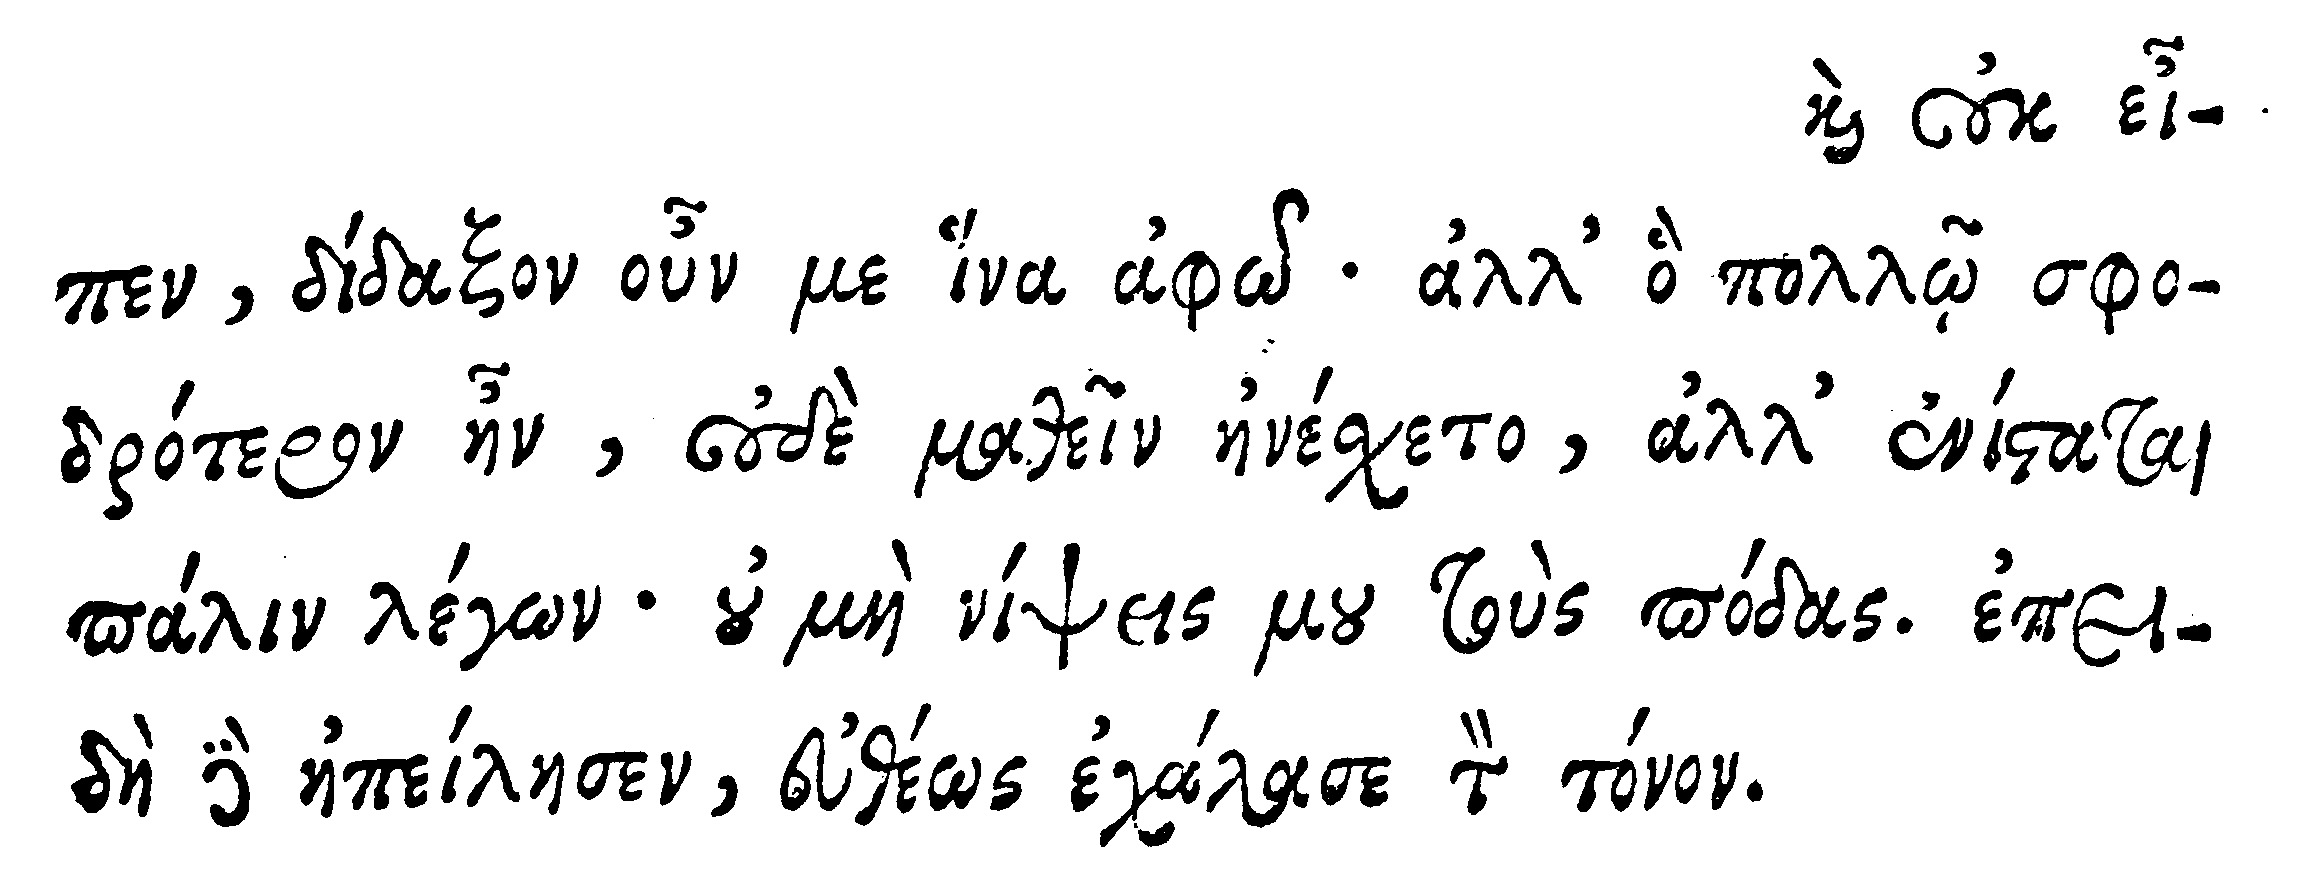 καὶ οὐκ εἶ-
πεν, δίδαξον οὖν με ἵνα ἀφῶ · ἀλλ’ ὃ πολλῷ σφο-
δρότερον ἦν, οὐδὲ μαθεῖν ἠνέχετο, ἀλλ’ ἐνίσταται
πάλιν λέγων · οὐ μὴ νίψεις μου τοὺς πόδας. ἐπει-
δὴ γὰρ ἠπείλησεν, εὐθέως ἐχάλασε τὸν τόνον.